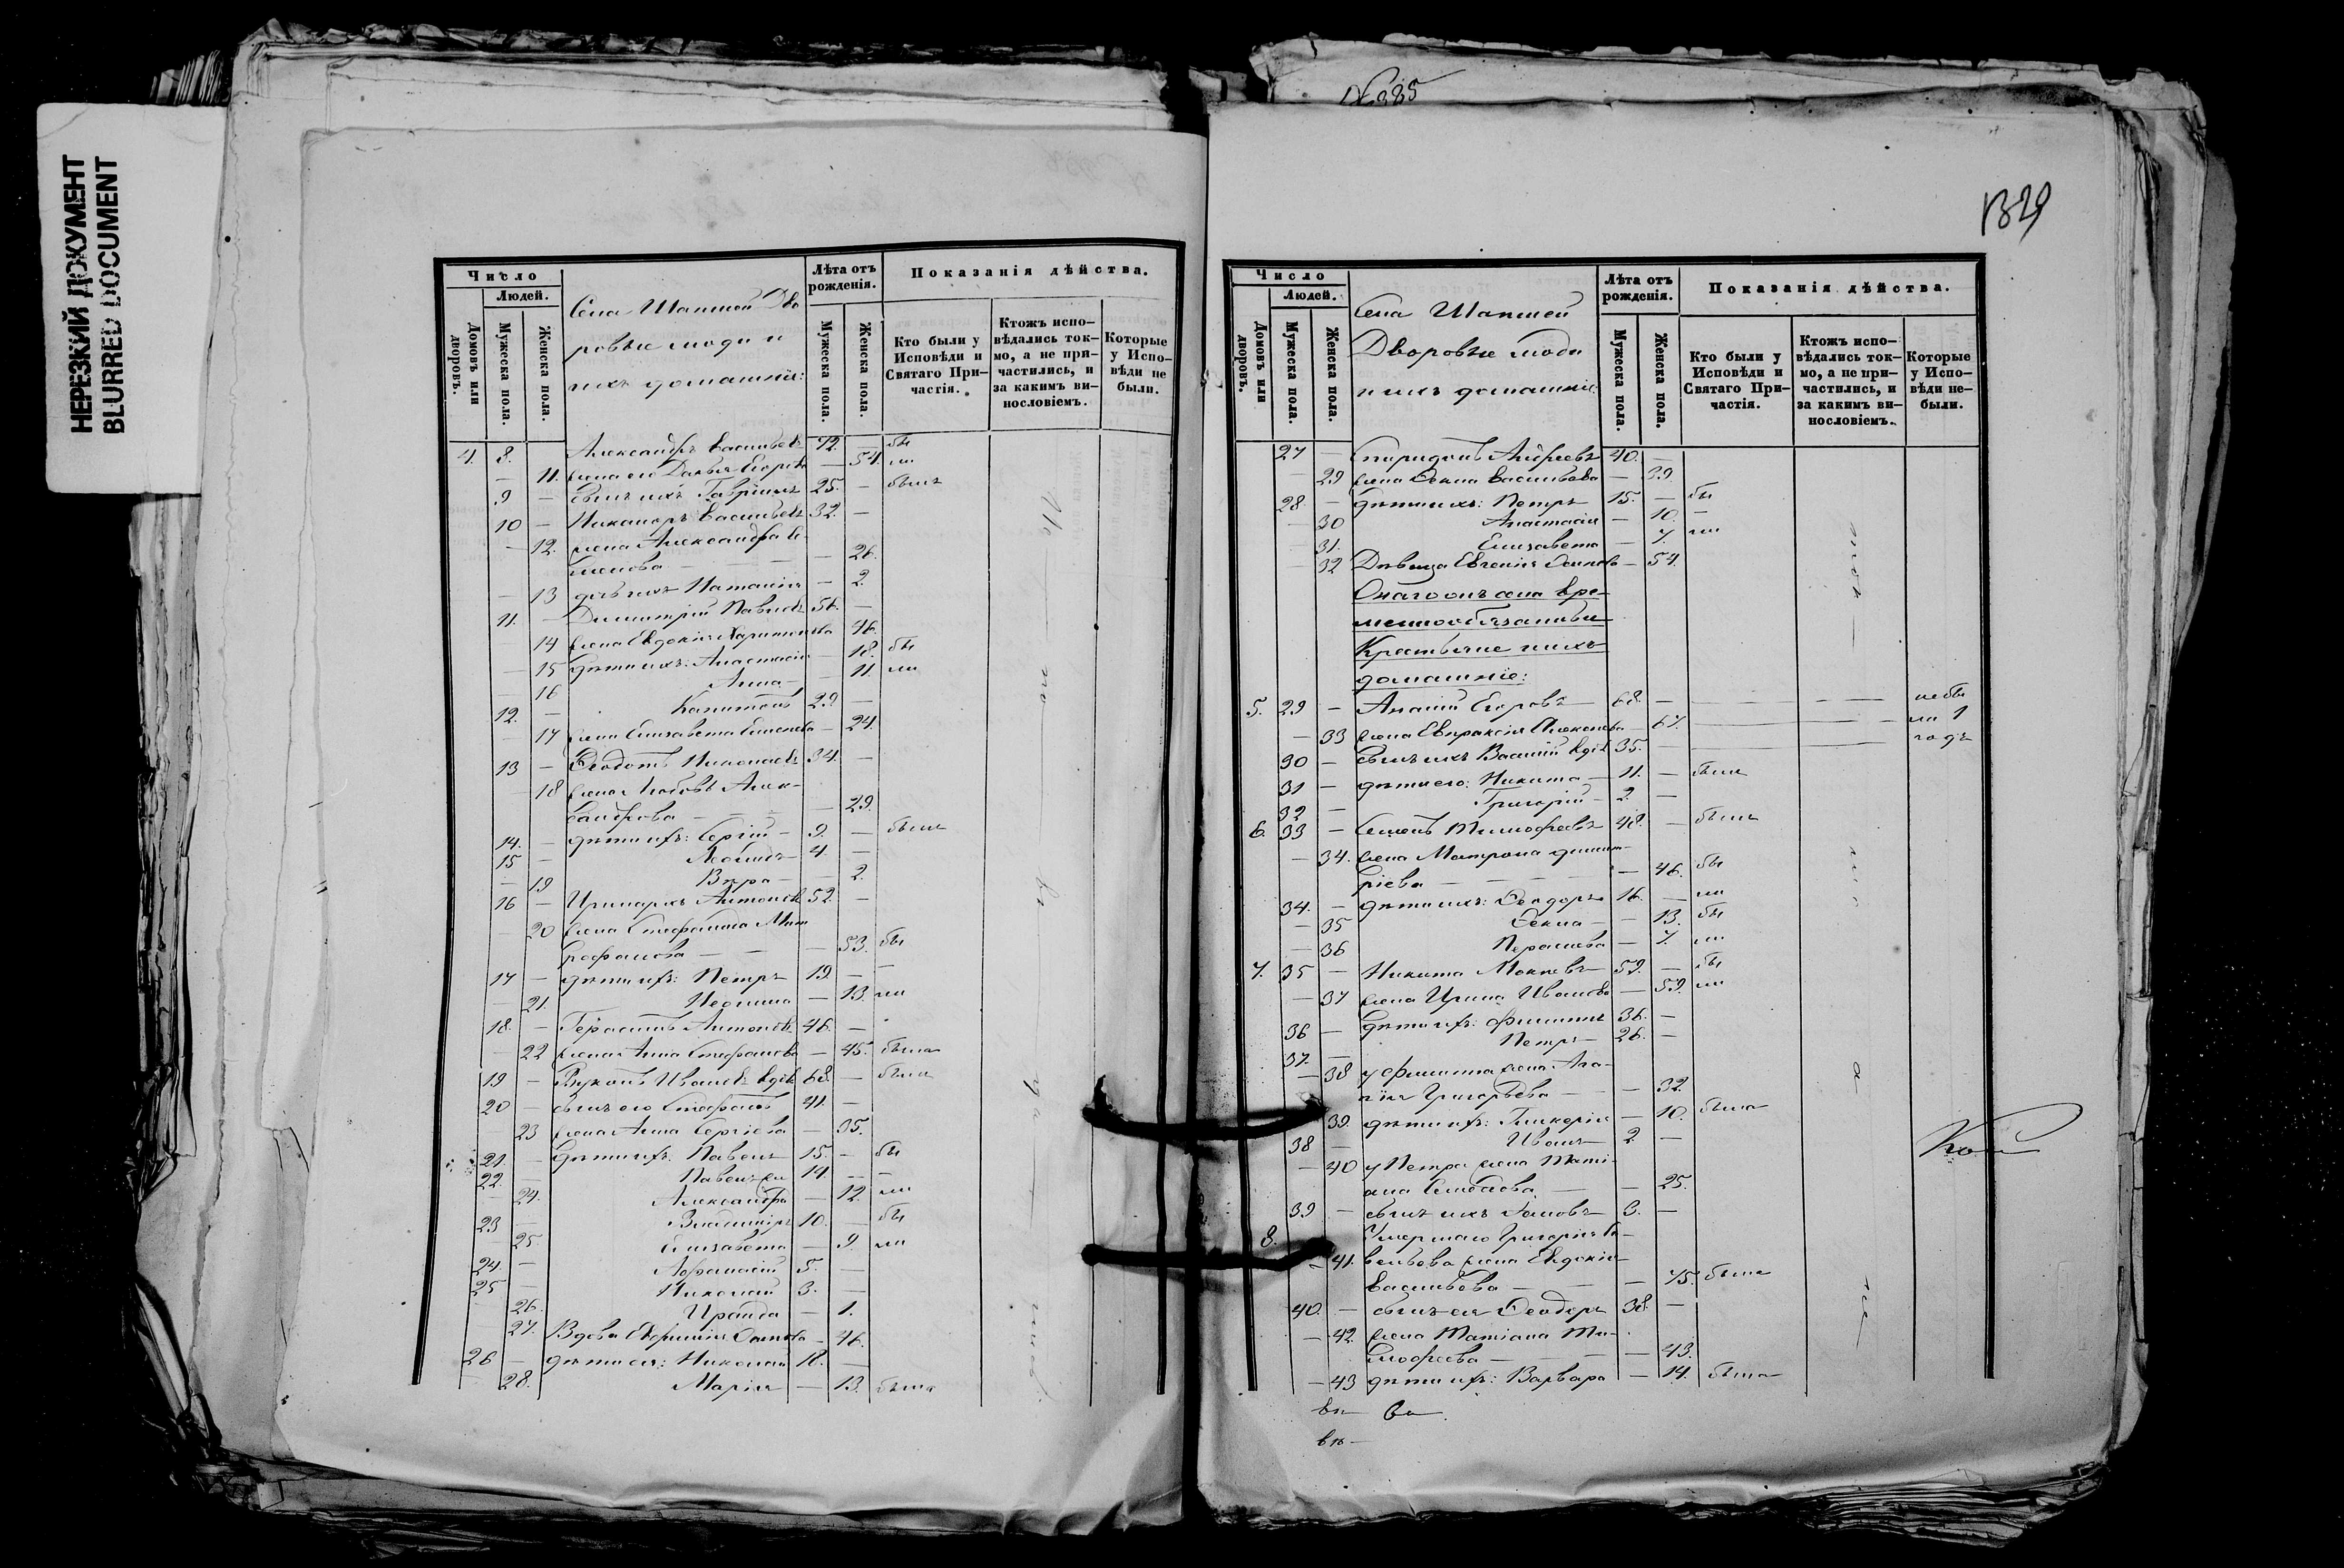 НЕРЕЗКИЙ ДОКУМЕНТ
BLURRED DOCUMENT
Число
Людей.
Домовъ или дворовъ.
Мужеска пола.
Женска пола.
Села Шапшей Дво
ровые люди и
ихъ домашніе:
Лѣта отъ рожденія.
Мужеска пола.
Женска пола.
Показанія дѣйства.
Кто были у Исповѣди и Святаго Причастія.
Ктожъ исповѣдались токмо, а не причастились, и за какимъ винословіемъ.
Которые у Исповѣди не были.
4. 8. Александръ Васильевъ 72. — бы
— 11. жена его Дарья Егорова — 54. ли
9 — сынъ ихъ Гавріилъ 25. — былъ
10 — Никаноръ Васильевъ 32. —
— 12. жена Александра Се-
менова — — 26.
— 13 дочь ихъ Наталія — 2.
11. — Димитрій Павловъ 56. —
— 14 жена Евдокія Харитонова 46.
— 15 дѣти ихъ: Анастасія — 18. бы
— 16 Анна — 11. ли
12. — Капитонъ 29 —
— 17 жена Елизавета Семенова — 24.
13 — Ѳеодотъ Николаевъ 34. —
— 18 жена Любовь Алек-
сандрова — — 29.
14. — дѣти ихъ: Сергій — 9. — былъ
15 — Леонидъ 4. —
— 19 Вѣра — — 2.
16 — Иринархъ Антоновъ 52. —
— 20 жена Степанида Мит
рофанова — — 53. бы
17 — дѣти ихъ: Петръ 19. —
— 21. Неонила — 13. ли
18. — Герасимъ Антоновъ 46. —
— 22 жена Анна Стефанова — 45. была
19 — Иванъ вдов 68. — былъ
20 — сынъ его Стефанъ 41. —
— 23 жена Анна Сергіева — 35.
21. — дѣти ихъ: Павелъ 15. — бы
22. — Павелъ 14. —
— 24. Александра — 12. ли
23 — Владиміръ 10. — бы
— 25. Елизавета — 9. ли
24. — Афанасій 5. —
25 — Николай 3. —
26. Ираида — 1.
27. Вдова Евфимія — 46.
26 — дѣти ея: Николай 18. —
28. Марія — 13. была
№ 385
1329
Число
Людей.
Домовъ или дворовъ.
Мужеска пола.
Женска пола.
Села Шапшей
Дворовые люди
и ихъ домашніе
Лѣта отъ рожденія.
Мужеска пола.
Женска пола.
Показанія дѣйства.
Кто были у Исповѣди и Святаго Причастія.
Ктожъ исповѣдались токмо, а не причастились, и за какимъ винословіемъ.
Которые у Исповѣди небыли.
27 — Спиридонъ Андреевъ 40. —
29 жена Ѳекла Васильева — 39.
28. — дѣти ихъ: Петръ 15. — бы
— 30 Анастасія — 10. —
— 31. Елизавета — 7. ли
32 Дѣвица Евгенія — 54.
Онаго онъ села вре-
меннообязанные
Крестьяне и ихъ
домашніе:
5. 29 — Ананій Егоровъ 68. — не бы
— 33 жена Евпраксія — 67. ли 1
30 — сынъ ихъ Василій вдов 35. — годъ
31 — дѣти его: Никита 11. — былъ
32 — Григорій 2. —
6. 33 — Семенъ Тимофеевъ 48. — былъ
— 34. жена Матрона Димит-
ріева — — 46. бы
34. — дѣти ихъ: Ѳеодоръ 16. — ли
— 35 Ѳекла — 13. бы
— 36 Параскева — 7. ли
7. 35 — Никита Мокеевъ 59. — бы
— 37 жена Ирина Иванова — 59. ли
36 — дѣти ихъ: Филиппъ 36. —
37. — Петръ 26. —
— 38 у Филиппа жена Ага-
пія Григорьева — — 32.
39. дѣти ихъ: Гликерія — 10. была
38 — Иванъ 2. —
— 40 у Петра жена Тати-
ана — — 25.
39 — сынъ ихъ Іаковъ 3. —
8. Умершаго Григорія Са-
— 41. вельева жена Евдокія
Васильева — — 75. была
40. — сынъ ея Ѳеодоръ 38. —
— 42. жена Татіана Ти-
мофеева — — 43.
— 43 дѣти ихъ: Варвара — 14. была